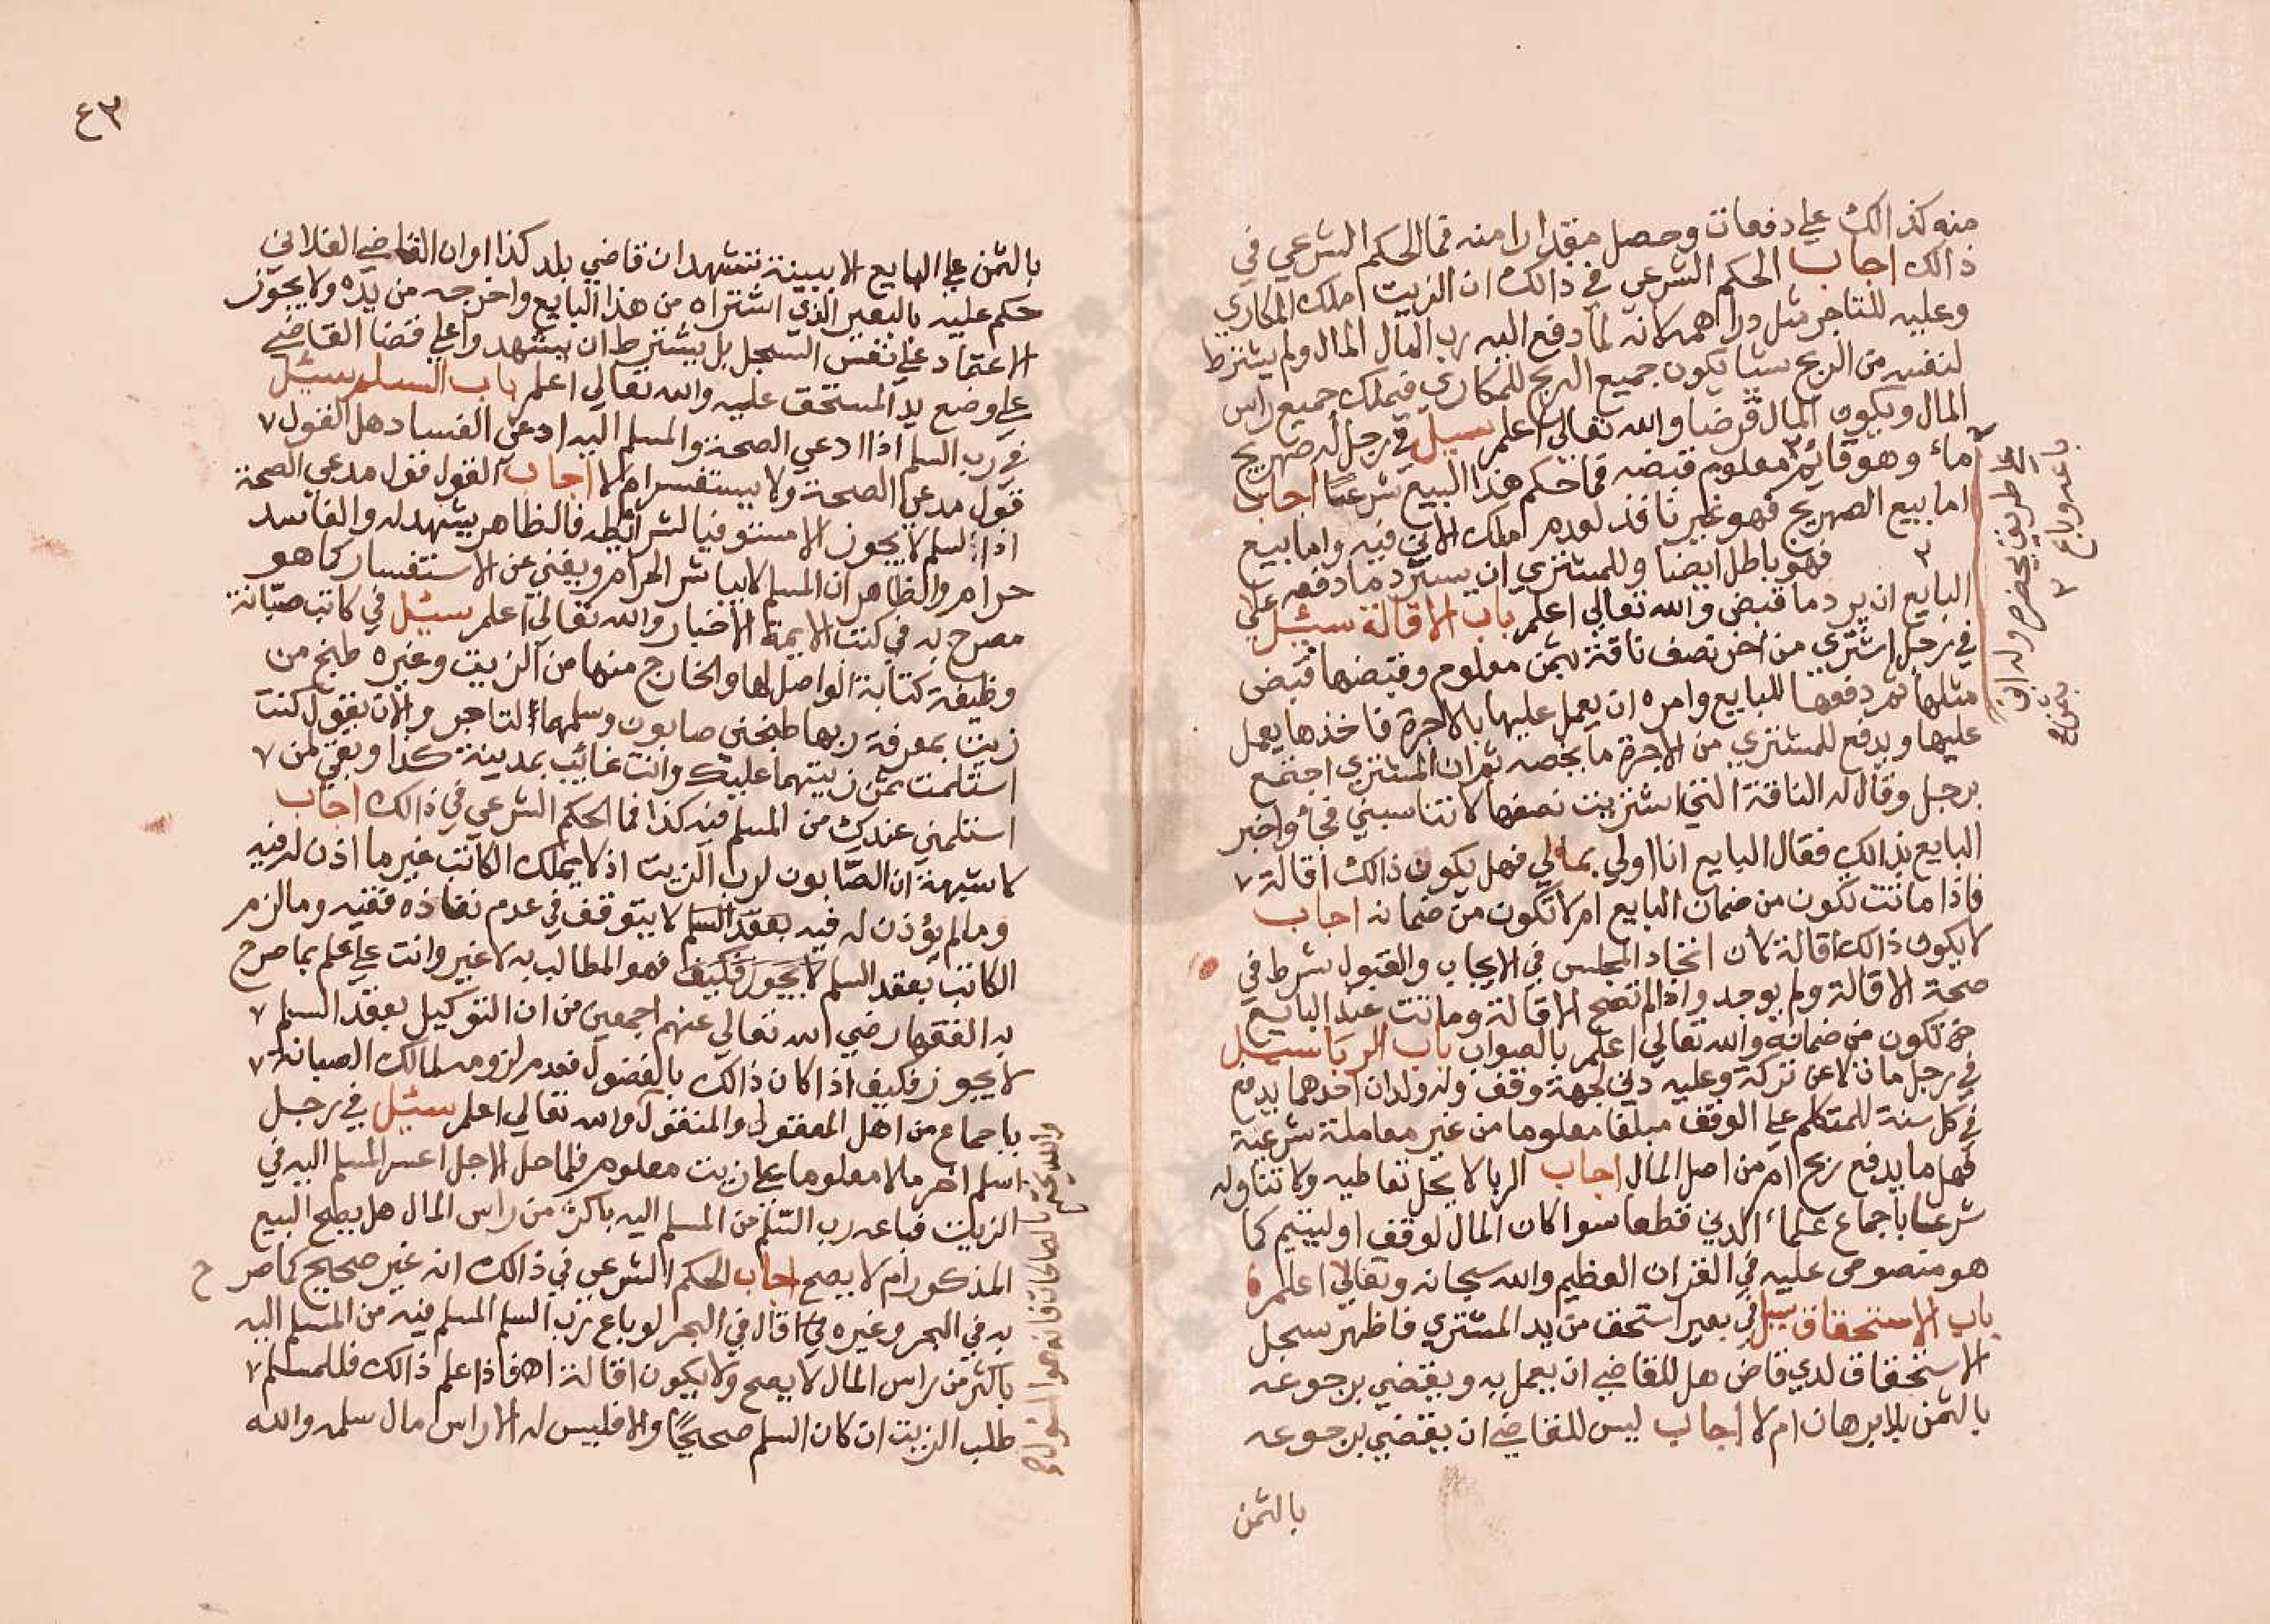 منه كذالك علي دفعات وحصل مقدارا منه فما الحكم الشرعي في
ذالك اجاب الحكم الشرعي في ذالك ان الزيت املك المكاري
وعليه للتاجر مثل دراهمه لانه لما دفع اليه رب المال المال ولم يشترط
لنفسه من الربح شيا يكون جميع الربح للمكاري فيملك جميع راس
المال ويكون المال قرضا والله تعالي اعلم سيل في رجل له صهريج
ماء وهو قائم معلوم قبضه فما حكم هذا البيع شرعا اجاب
اما بيع الصهريج فهو غير نافذ لعدم املك الاذن فيه واما بيع
فهو باطل ايضا وللمشتري ان يسترد ما دفعه علي
البايع ان يرد ما قبض والله تعالي اعلم باب الاقالة سئيل
في رجل اشتري من اخر نصف ناقة بثمن معلوم وقبضها قبض
مثلها ثم دفعها للبايع وامره ان يعمل عليها بالاجرة فاخذها يعمل
عليها ويدفع للمشتري من الاجرة ما يخصه ثم ان المشتري اجتمع
برجل وقال له الناقة التي اشتريت نصفها لا تناسبني فجاء واخبر
البايع بذالك فقال البايع انا اولي بمالي فهل يكون ذالك اقالة ٧
فاذا ماتت تكون من ضمان البايع ام لا تكون من ضمانه اجاب
لا يكون ذالك اقالة لان اتحاد المجلس في الايجاب والقبول شرط في
صحة الاقالة ولم يوجد واذا لم تصح الاقالة وماتت عند البايع
تكون من ضمانه والله تعالي اعلم بالصواب باب الربا سيل
في رجل مات لا عن تركة وعليه دين لجهة وقف وله ولدان احدهما يدفع
في كل سنة للمتكلم علي الوقف مبلغا معلوما من غير معاملة شرعية
فهل ما يدفع ربح ام من اصل المال اجاب الربا لا يحل تعاطيه ولا تناوله
شرعا باجماع علماء الدين قطعا سوا كان المال لوقف او ليتيم كما
هو منصوص عليه في القران العظيم والله سبحانه وتعالي اعلم
باب الاستحقاق سيل في بعير استحق من يد المشتري فاظهر سجل
الاستحقاق لدي قاض هل للقاضي ان يعمل به ويقضي برجوعه
بالثمن بلا برهان ام لا اجاب ليس للقاضي ان يقضي برجوعه
بالثمن
٤٣
بالثمن علي البايع الا ببينة تشهد ان قاضي بلد كذا او ان القاضي الفلاني
حكم عليه بالبعير الذي اشتراه من هذا البايع واخرجه من يده ولا يجوز
الاعتماد علي نفس السجل بل يشترط ان يشهدوا علي قضا القاضي
علي وضع يد المستحق عليه والله تعالي اعلم باب السلم سئيل
في رب السلم اذا ادعي الصحة والمسلم اليه ادعي الفساد هل القول ٧
قول مدعي الصحة ولا يستفسر ام لا اجاب القول قول مدعي الصحة
اذ السلم لا يجوز الا مستوفيا لشرائطه فالظاهر يشهد له والفاسد
حرام والظاهر ان المسلم لا يباشر الحرام ويغني عن الاستفسار كما هو
مصرح به في كتب الايمة الاخيار والله تعالي اعلم سئيل في كاتب صبانة
وظيفة كتابة الواصل لها والخارج منها من الزيت وغيره طبخ من
زيت بمعرفة ربها طبختي صابون وسلمها التاجر والان يقول كنت
استلمت ثمن زيتهما عليك وانت غائب بمدينة كذا وبقي لمن ٧
استلمني عندك من المسلم فيه كذا فما الحكم الشرعي في ذالك اجاب
لا شبهة ان الصابون لرب الزيت اذ لا يملك الكاتب غير ما اذن له فيه
وما لم يؤذن له فيه بعقد السلم لا يتوقف في عدم نفاذه فقيه وما لزم
الكاتب بعقد السلم لا يجوز فكيف فهو المطالب به لا غير وانت علي علم بما صرح
به الفقها رضي الله تعالي عنهم اجمعين من ان التوكيل بعقد السلم ٧
لا يجوز فكيف اذا كان ذالك بالفضول فعدم لزومه لمالك الصبانة ٧
باجماع من اهل المعقول والمنقول والله تعالي اعلم سئيل في رجل
اسلم اخر مالا معلوما علي زيت معلوم فلما حل الاجل اعسر المسلم اليه في
الزيت فباعه رب السلم من المسلم اليه باكثر من راس المال هل يصح البيع
المذكور ام لا يصح اجاب الحكم الشرعي في ذالك انه غير صحيح كما صرح
به في البحر وغيره قال في البحر لو باع رب السلم المسلم فيه من المسلم اليه
باكثر من راس المال لا يصح ولا يكون اقالة اه فاذا علم ذالك فللمسلم ٧
طلب الزيت ان كان السلم صحيحا والا فليس له الا راس مال سلمه والله